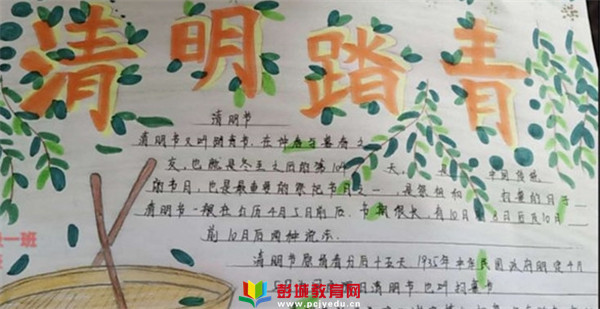 清明踏青
清明节
清明节又叫踏青节,在仲春与暮春之
交,也就是冬至之后的第10 天。是 中国传统
的节日,也是最重要的祭祀节日之一,是祭祖和 扫墓的日子
清明节一般在公历4月5日前后。节期很长,有10日 8日后及10日
前10日后两种说法。
清明节原始春分后十五天1935年中华民国政府明定4月
日清明节也叫扫墓节
一班
彭城教育网
www.pcjyedu.cn